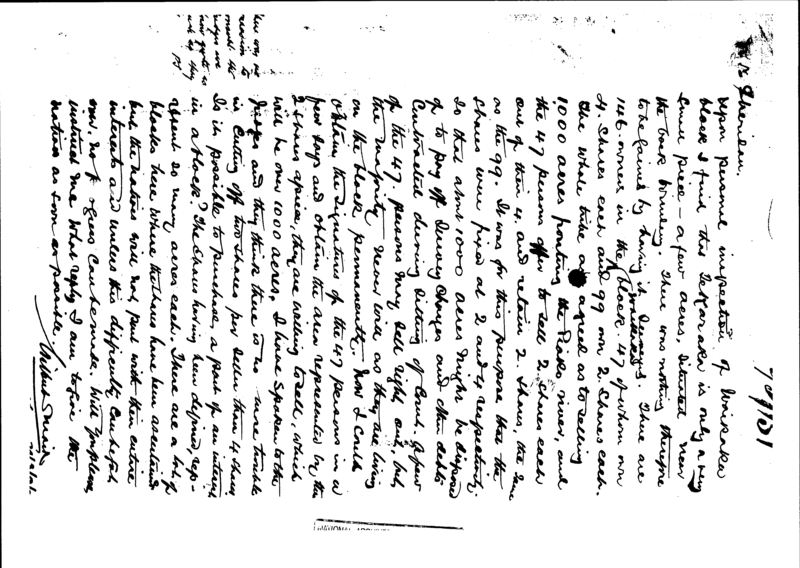 Mr Sheridan.
Upon personal inspection of Waikaka
block I find this Te Karaka is only a very
small piece – a few acres, situated near
the back boundary. There was nothing therefore
to be gained by having it surveyed. There are
146 owners in the Waikaka block. 47 of whom own
4 shares each and 99 own 2 shares each.
The whole tribe are agreed as to selling
1000 acres fronting the river, and
the 47 persons offer to sell 2 shares each
out of their 4, and retain 2 shares, the same
as the 99. It was for this purpose that the
shares were fixed at 2 and 4 respectively
so that about 1000 acres might be disposed
of to pay off survey charges and other debts
contracted during sitting of Court. A few
of the 47 persons may sell right out, but
the majority never will as they are living
on the block permanently. Now I could
obtain the signatures of the 47 persons in a
few days and obtain the area represented by the
2 shares apiece, they are willing to sell, which
will be over 1000 acres. I have spoken to the
Judges and they think there is no more trouble
in cutting off two shares per seller than 4 shares
Is it possible to purchase a part of an interest
in a block? The shares having been defined, rep-
resent so many acres each. There are a lot of
blocks here where the shares have been ascertained
but the natives will not part with their entire
interests and unless this difficulty can be got
over, no progress can be made. Will you please
instruct me what reply I am to give the
natives as soon as possible.